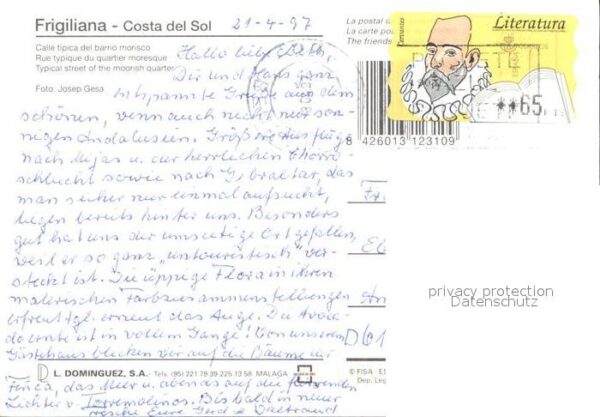 Frigiliana - Costa del Sol
21-4-97
Calle típica del barrio morisco
Rue typique du quartier moresque
Typical street of the moorish quarter
Foto: Josep Gesa
La postal
La carte po
The friends
Cervantes
Literatura
**65
8 426013 123109
Hallo liebe Edith,
Dir und Hans ganz
entspannte Grüße aus dem
schönen, wenn auch nicht nur son-
nigen Andalusien. Größere Ausflüge
nach Mijas u. zur herrlichen Chorro-
schlucht sowie nach Gibraltar, das
man sicher nur einmal aufsucht,
liegen bereits hinter uns. Besonders
gut hat uns der umseitige Ort gefallen,
weil er so ganz „untouristisch" ver-
steckt ist. Die üppige Flora in ihren
malerischen Farbzusammenstellungen
erfreut tgl. erneut das Auge. Die Avoca-
doernte ist in vollem Gange! Von unserem
Gästehaus blicken wir auf die Bäume der
Finca, das Meer u. abends auf die
Lichter v. Torremolinos. Bis bald in neuer
Frische Eure Gerd & Daltraud
privacy protection
Datenschutz
D L. DOMINGUEZ, S.A. - Tels. (95) 221 79 39 225 13 58 MALAGA
© FISA
Dep. Leg